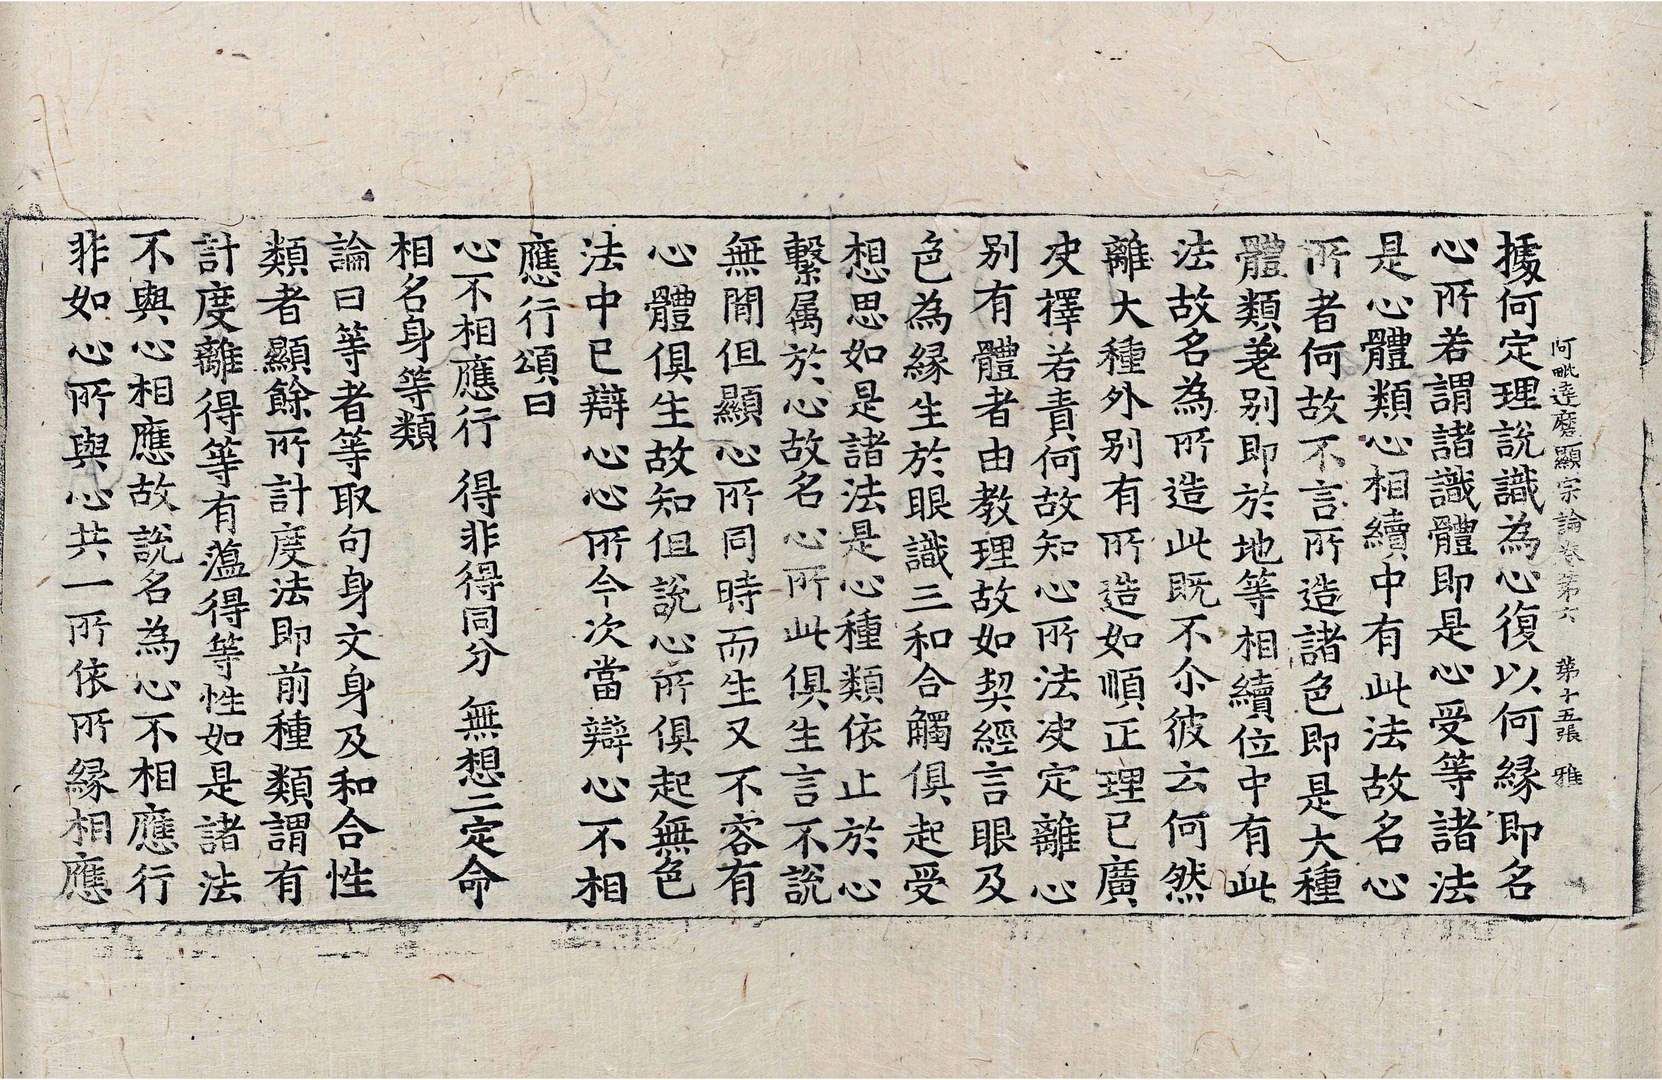 阿毗達磨顯宗論卷第六 第十五張 雅
據何定理說識為心復以何縁即名
心所若謂諸識體即是心受等諸法
是心體類心相續中有此法故名心
所者何故不言所造諸色即是大種
體類差别即於地等相續位中有此
法故名為所造此既不尒彼云何然
離大種外别有所造如順正理已廣
決擇若責何故知心所法決定離心
别有體者由教理故如契經言眼及
色為縁生於眼識三和合觸俱起受
想思如是諸法是心種類依止於心
繫属於心故名心所此俱生言不說
無間但顯心所同時而生又不容有
心體俱生故知但說心所俱起無色
法中已辯心心所今次當辯心不相
應行頌曰
心不相應行 得非得同分 無想二定命
相名身等類
論曰等者等取句身文身及和合性
類者顯餘所計度法即前種類謂有
計度離得等有薀得等性如是諸法
不與心相應故說名為心不相應行
非如心所與心共一所依所縁相應